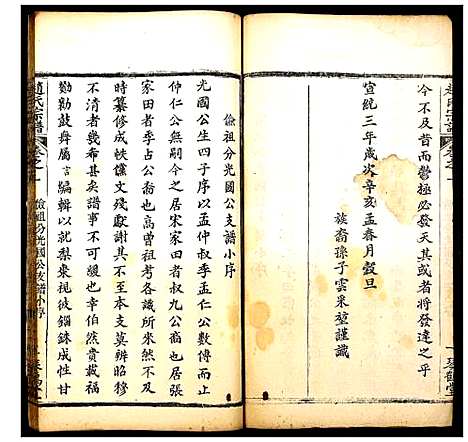 今不及百而鬱極必發天其或者將發達之乎
宣統三年歲次辛亥孟春月穀旦
族裔孫子雲采堃謹識
琴鶴堂
儉祖分光國公支譜小序
光國公生四子序以孟仲叔季孟仁公數傳而止
仲仁公無嗣今之居宋家田者叔九公裔也居張
家田者季占公裔也高曾祖考各識所來然不及
時纂修成帙儻文殘獻謝其於本支莫辨昭穆
不清者幾矣譜事不可緩也幸伯然貴載福
勷勷鼓舞屬言騙輯以就梨棗視彼錙銖成性甘
趙氏宗譜
卷之一
儉祖分光國公支譜小序